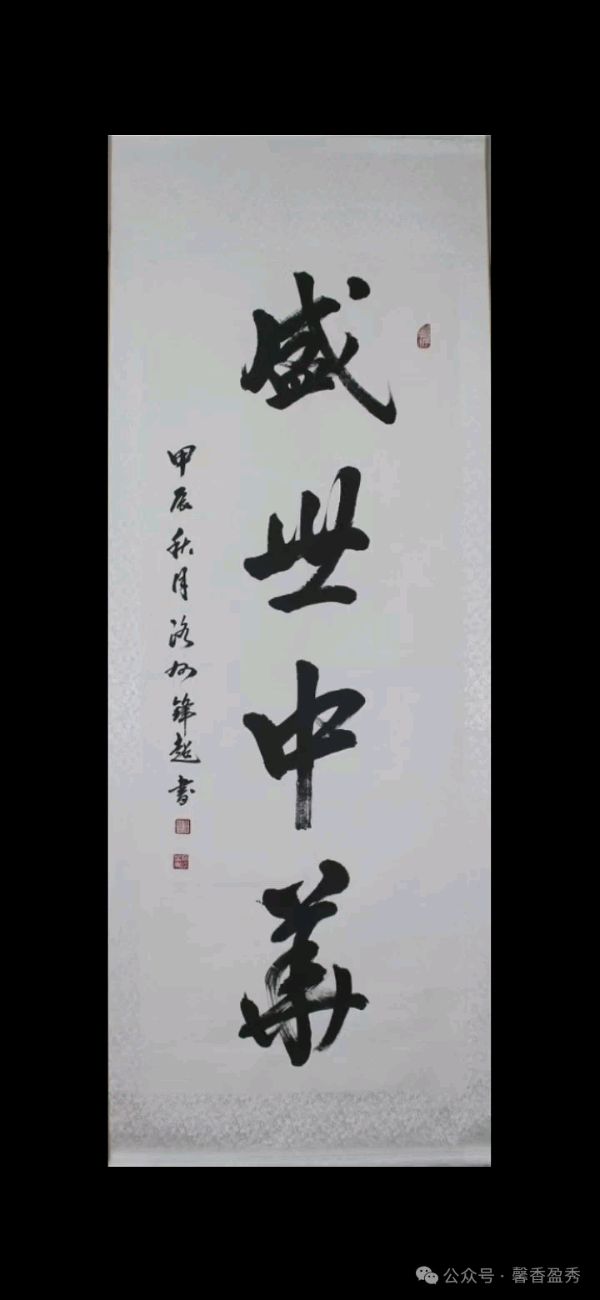 盛世中華
甲辰秋月洛州鋒超書
公众号·馨香盈秀